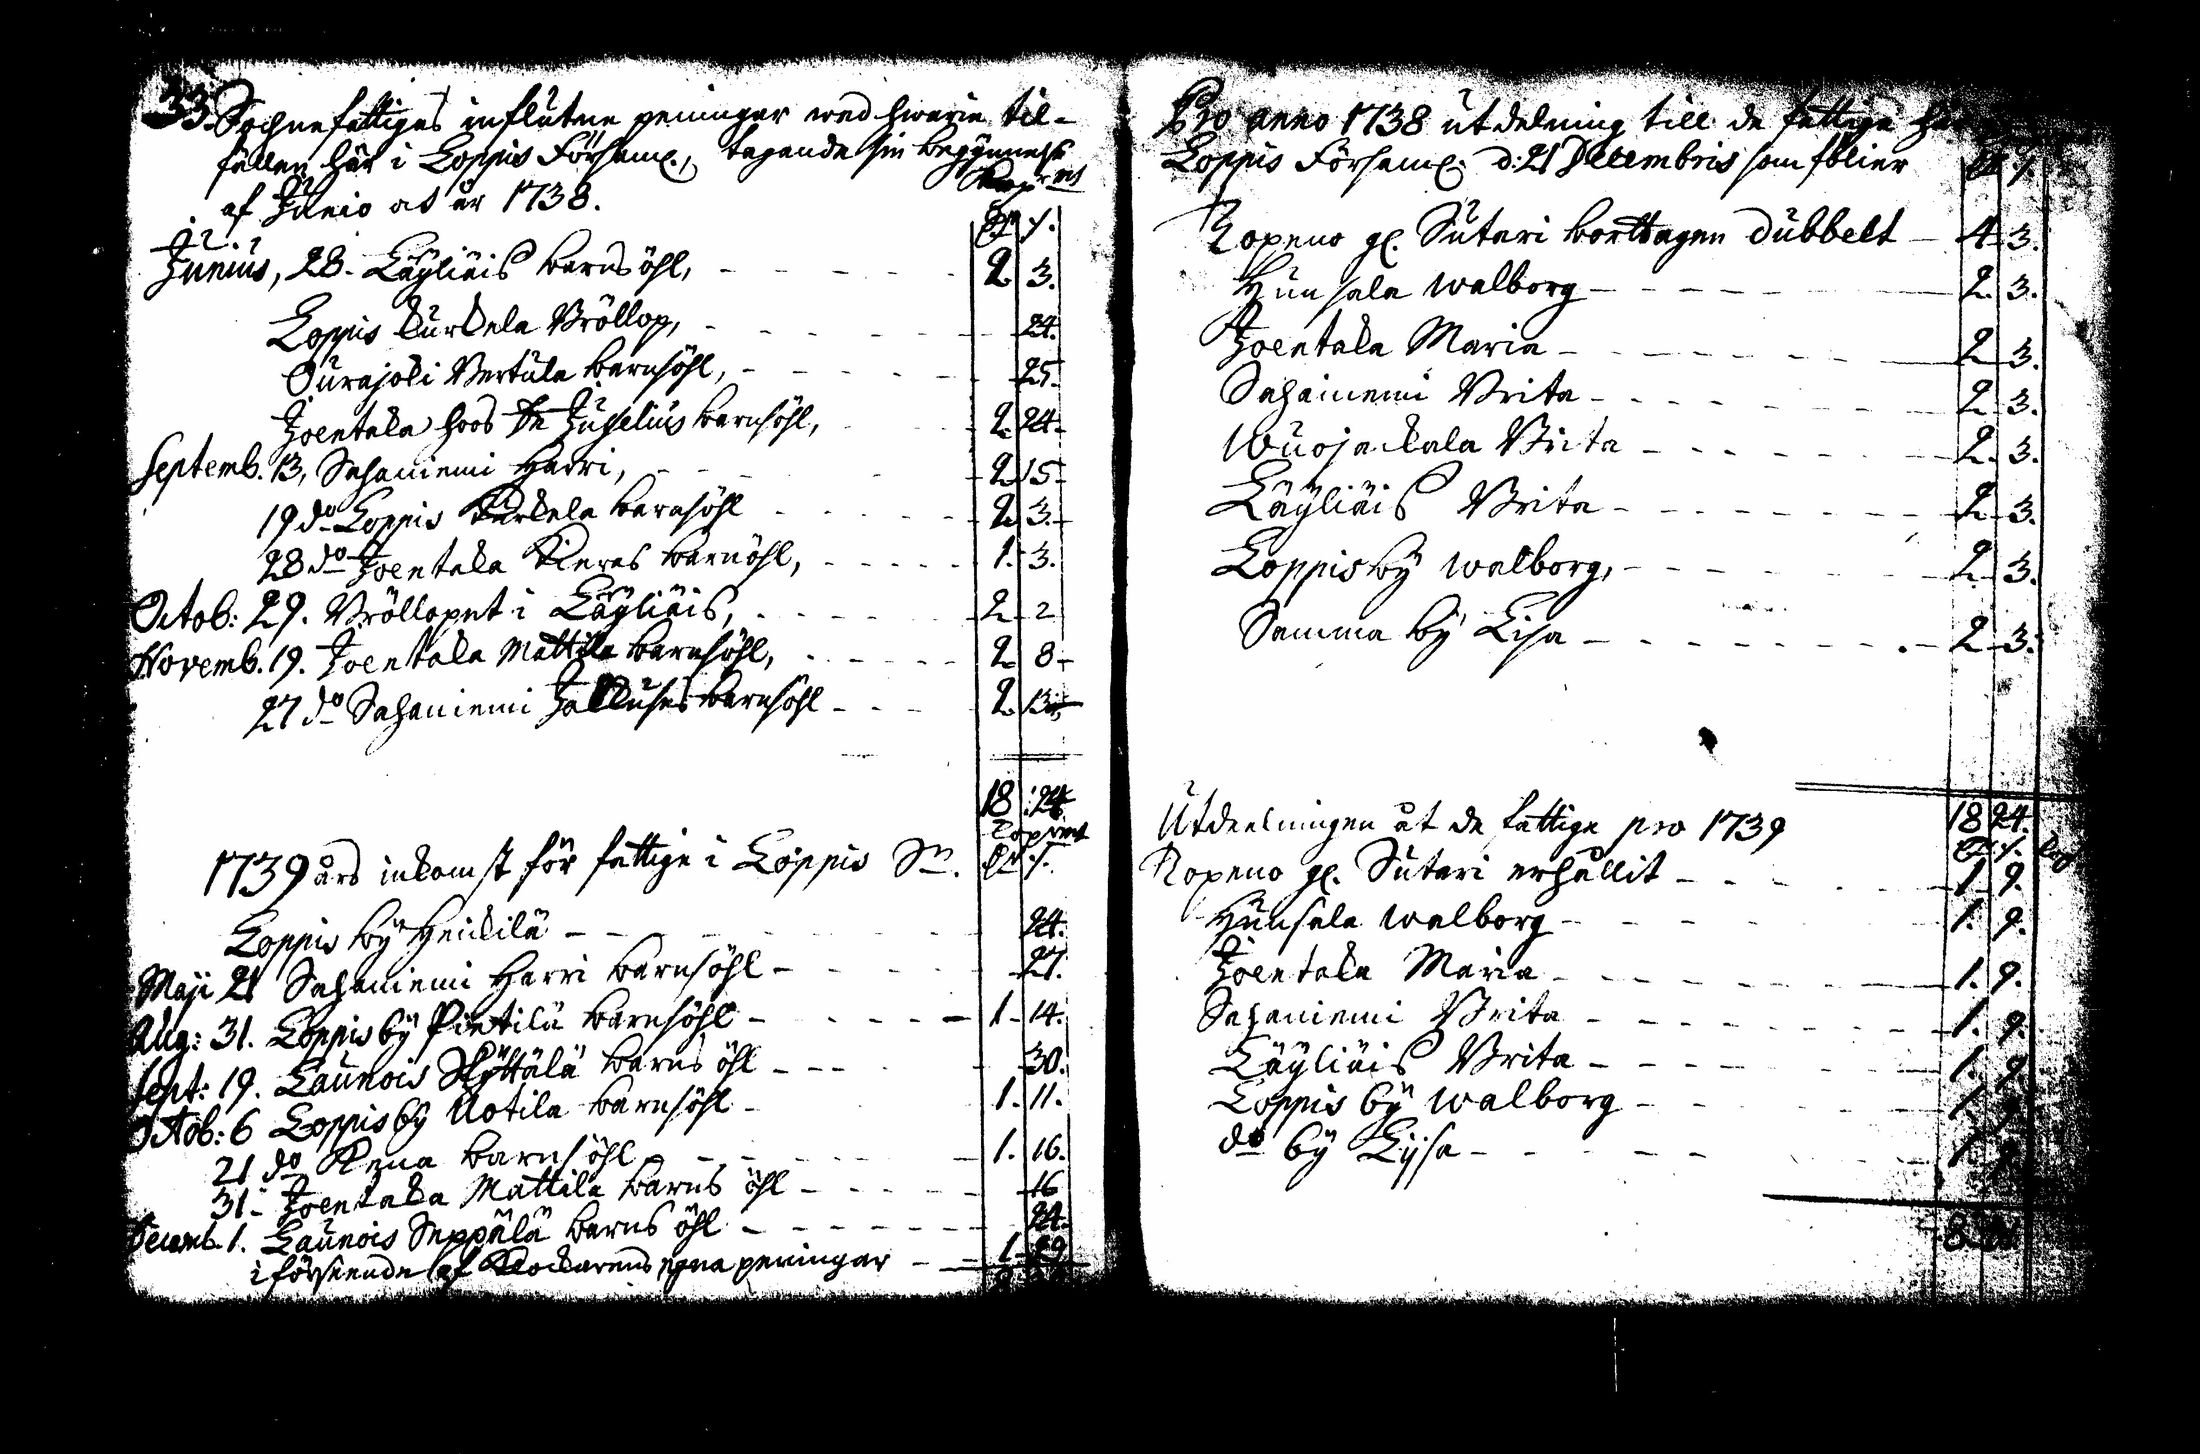 33. Sochnefattiges influtne peningar wed hwarie til-
fällen här i Loppis Församl., tagande sin begynnelse
af Junio at år 1738.
Kopr mt
D. /.
Junius, 28. Läyliäis barnsöhl, 2. 3.
Loppis Kurkela Bröllop, 24.
Ourajoki Pertula barnsöhl, 25.
Joentaka hoos Juselius barnsöhl, 2 24.
Septemb. 13, Sahaniemi Harri, 2 15
19 do Loppis Kurkela barnsöhl 2 3.
28 do Joentaka Kieras barnöhl, 1. 3.
Octob: 29. Bröllopet i Läyliäis, 2 2
Novemb. 19. Joentaka Mattila barnsöhl, 2 8
27 do Sahaniemi barnsöhl 2 13
18 : 24
Koprmt
1739 års inkomst för fattige i Loppis Sn. D. /.
Loppis by Heickilä 24.
Maji 21 Sahaniemi Harri barnsöhl 27.
Aug: 31. Loppis by Pietilä barnsöhl 1 14.
Sept: 19. Launois Kyttälä barns öhl 30.
Octob: 6 Loppis by Uotila barnsöhl 1. 11.
21 do barnsöhl 1. 16.
31 Joentaka Mattila barns öhl 16
Decemb. 1. Launois Seppälä barns öhl 24.
i förseende af Klockarens egna peningar 1 29
8
Pro anno 1738 utdelning till de fattige här
Loppis Församl. d: 21 Decembris som fölier D. /.
Topeno gl. Sutari borttagen dubbelt 4 3.
Hunsala walborg 2. 3.
Joentaka Maria 2 3.
Sahaniemi Brita 2 3.
Wuojackala Brita 2. 3.
Läyliäis Brita 2 3.
Loppis by walborg, 2 3.
Samma by Lisa 2 3.
18 24.
Utdeelningen åt de fattige pro 1739
D. /.
Topeno gl. Sutari erhållit 1 9.
Hunsala walborg 1. 9.
Joentaka Maria 1. 9.
Sahaniemi Brita 1. 9.
Läyliäis Brita 1. 9.
Loppis by walborg 1. 9.
do by Lijsa 1 9.
8